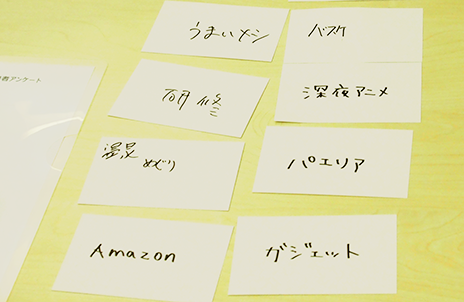 うまいメシ
バスク
研修
深夜アニメ
めぐり
パエリア
Amazon
ガジェット
アンケート